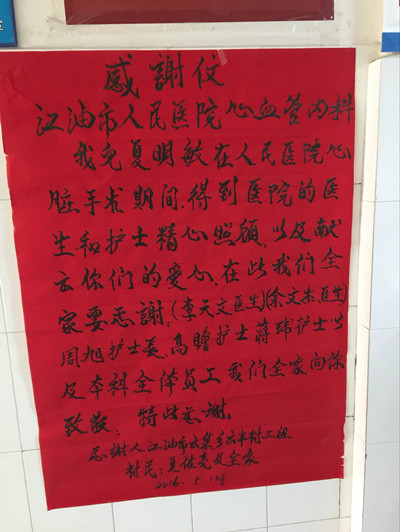 感謝仪
江油市人民医院心血管内科
我兒夏明敏在人民医院心
脏手术期间,得到医院的医
生和护士精心照顧,以及献
出你们的爱心,在此我们全
家要感謝:(李天文医生)(余文杰医生)
周旭护士长、高瞻护士蒋玮护士以
及本科全体员工我们全家向你
致敬;特此感謝。
感謝人江油市云集乡云丰村三组
村民:夏佐亮及全家
2016.5.